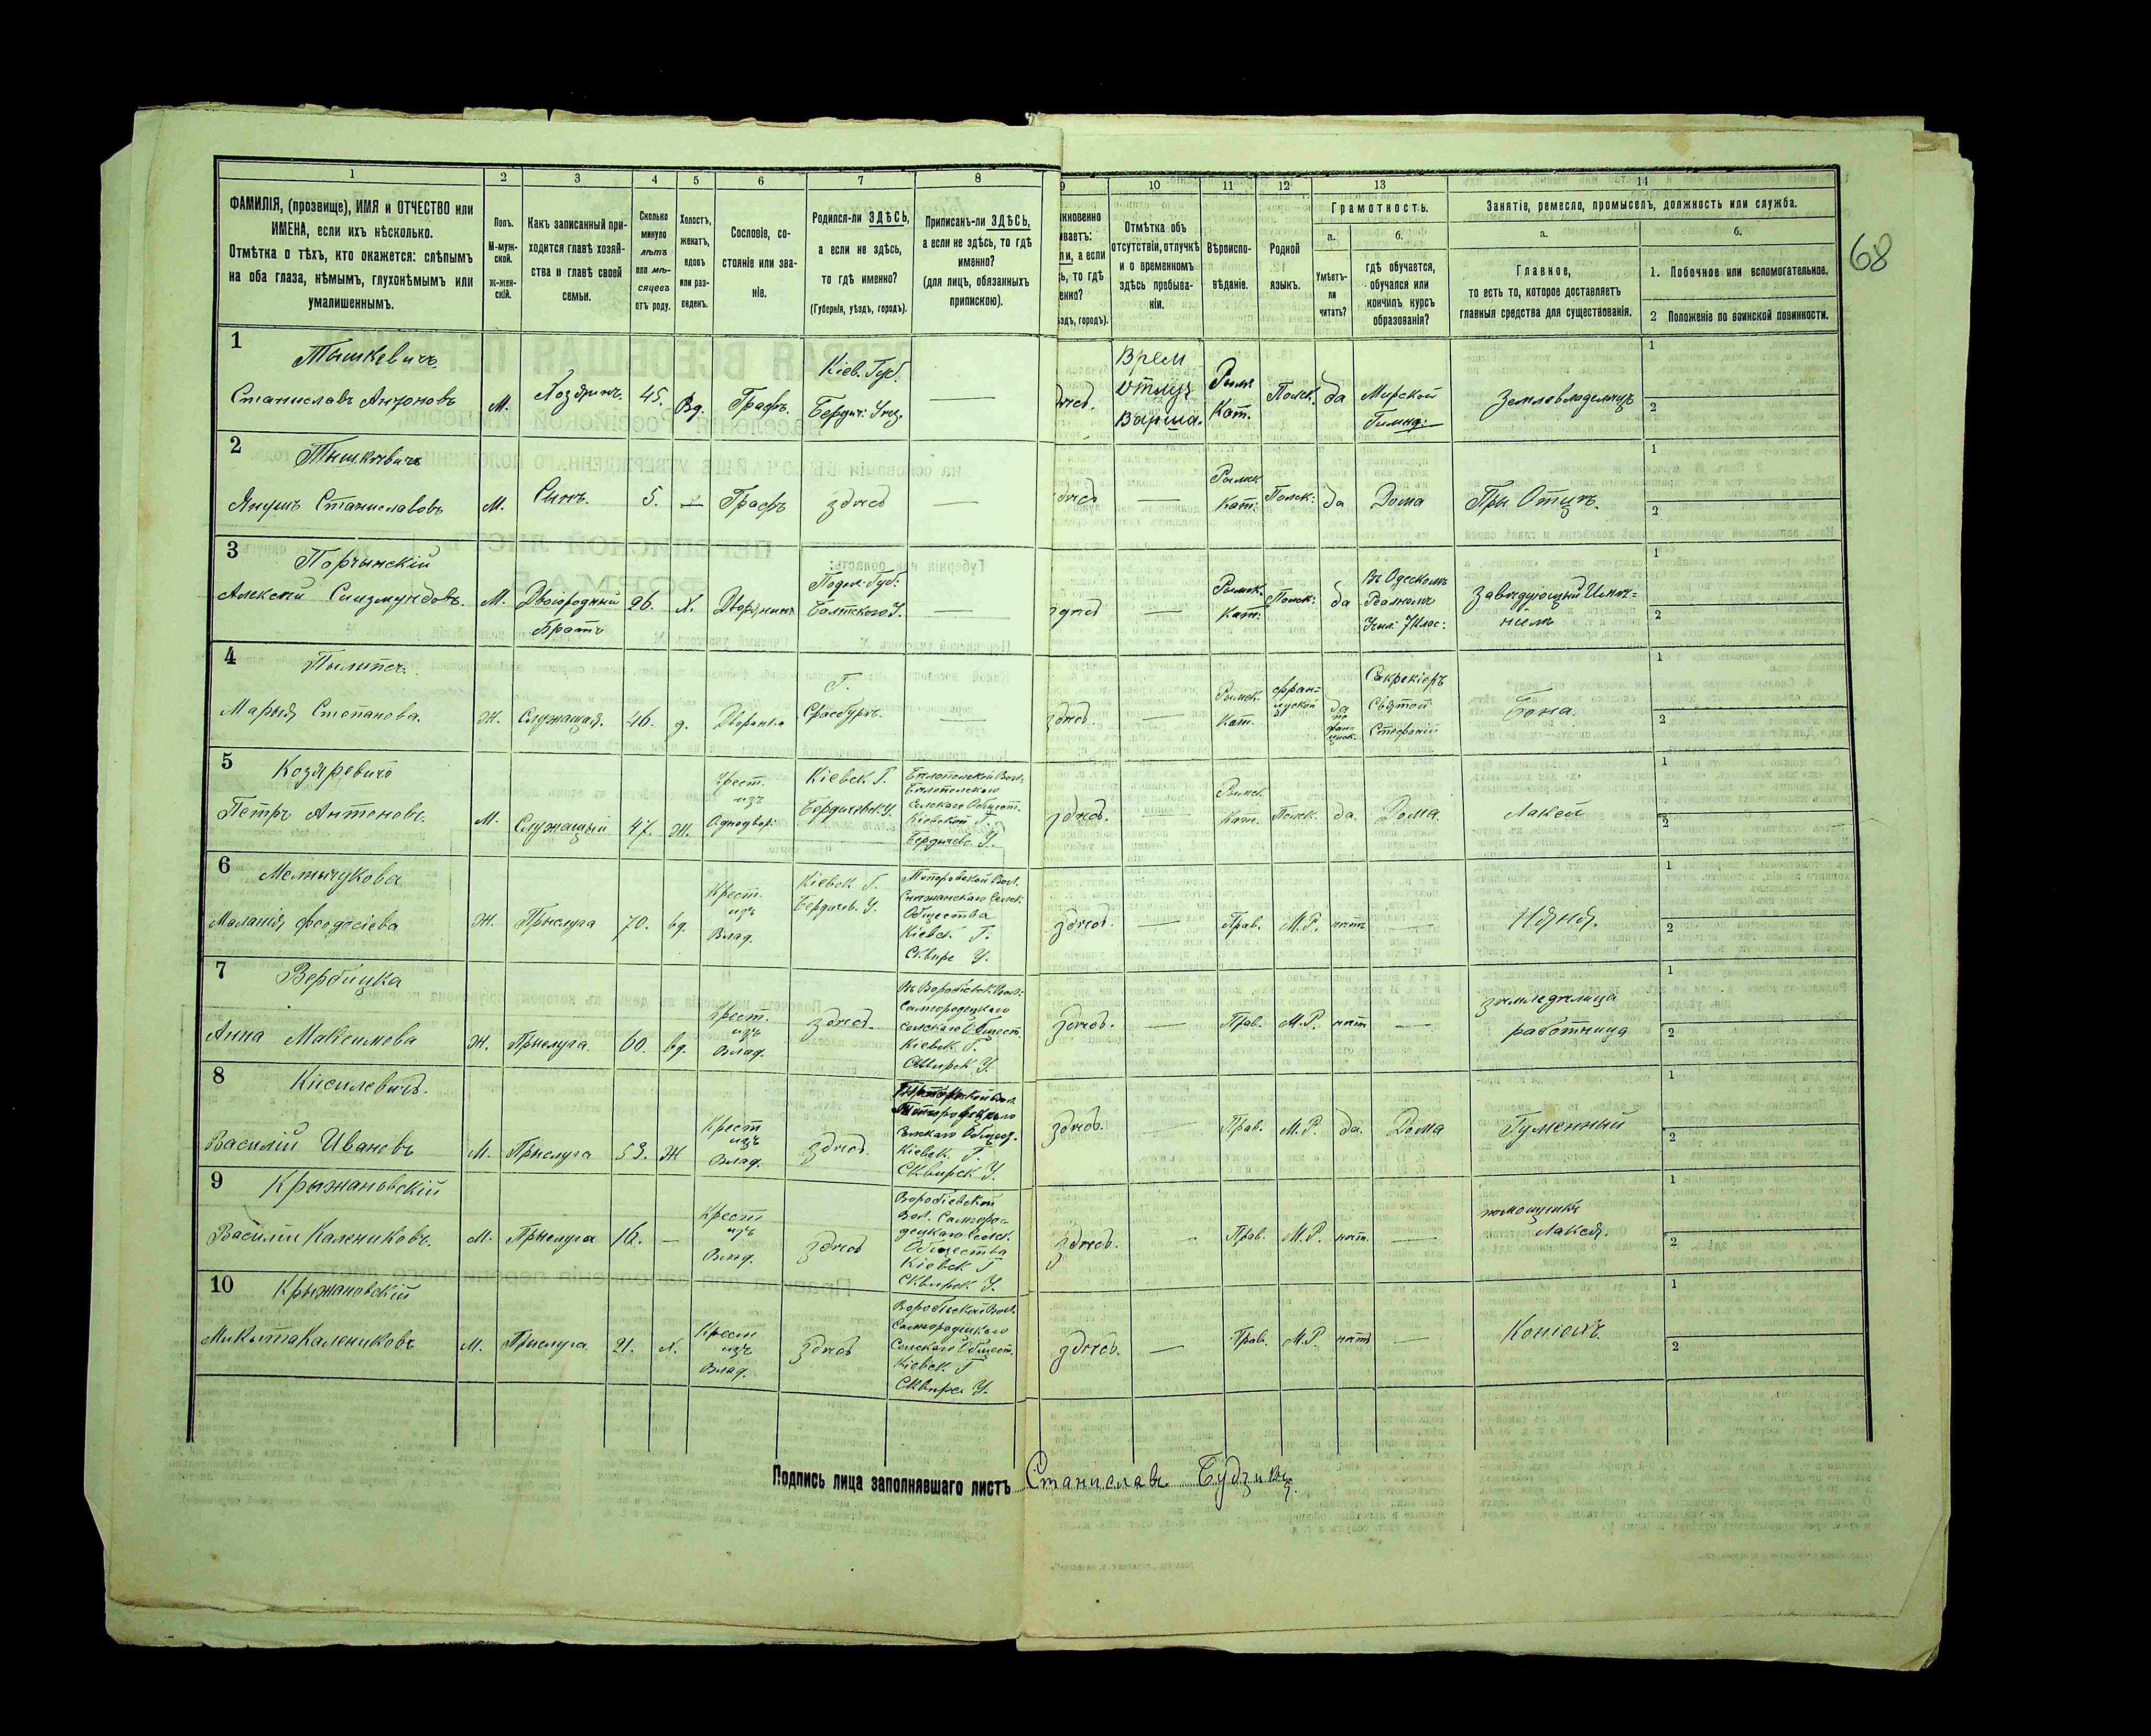 68
1 2 3 4 5 6 7 8 9 10 11 12 13 14
ФАМИЛІЯ, (прозвище), ИМЯ и ОТЧЕСТВО или ИМЕНА, если ихъ нѣсколько.
Отмѣтка о тѣхъ, кто окажется: слѣпымъ на оба глаза, нѣмымъ, глухонѣмымъ или умалишеннымъ.
Полъ.
М-муж-ской.
ж-жен-скій.
Какъ записанный при-ходится главѣ хозяй-ства и главѣ своей семьи.
Сколько минуло лѣтъ или мѣ-сяцевъ отъ роду.
Холостъ, женатъ, вдовъ или раз-веденъ.
Сословіе, со-стояніе или зва-ніе.
Родился-ли ЗДѢСЬ, а если не здѣсь, то гдѣ именно?
(Губернія, уѣздъ, городъ).
Приписанъ-ли ЗДѢСЬ, а если не здѣсь, то гдѣ именно?
(для лицъ, обязанныхъ припискою).
Отмѣтка объ отсутствіи, отлучкѣ и о временномъ здѣсь пребыва-ніи.
Вѣроиспо-вѣданіе.
Родной языкъ.
Грамотность.
а.
Умѣетъ-ли читать?
б.
гдѣ обучается, обучался или кончилъ курсъ образованія?
Занятіе, ремесло, промыселъ, должность или служба.
а.
Главное,
то есть то, которое доставляетъ главныя средства для существованія.
б.
1. Побочное или вспомогательное.
2 Положеніе по воинской повинности.
1 Тышкевичъ
Станиславъ Антоновъ М. Хозяинъ. 45. Вд. Графъ. Кіев. Губ. Бердич: Уѣз. — Врем отлуч Варша. Римк Кат. Польк. да Мирской Гимнд: Землевладелецъ
2 Тышкевичъ
Янушъ Станиславовъ М. Сынъ. 5. — Графъ здѣсь — здѣсь — Римск Кат: Польск: да Дома При Отцѣ.
3 Порчынскій
Алексѣй Сигизмундовъ. М. Двоюродный Братъ 26. Х. Дворянинъ Подол: Губ: Балтского У. — здѣсь — Римск. Кат: Польск: да Въ Одескомъ Реальномъ Учил: 7 Клас: завѣдующый Имѣ=ніемъ
4
Марыя Степанова. Ж. Служащая. 46. д. Дворянка Г. Срасбургъ. — здѣсь. — Римск. Кат. фран=цуской да по фран=цуск. Святой Стефаній Бона.
5 Козяревичъ
Петръ Антоновъ. М. Служащый 47. Ж. Крест. изъ Однодвор: Кіевск. Г. Бердичевск. У. Бѣлопольской Вол. Бѣлопольского Сельского Общест. Кіевской Г. Бердычевс. У. здѣсь. — Римск. Кат. Польск. да. Дома. Лакей
6 Мельничукова
Маланія Феодосіева Ж. Прыслуга 70. вд. Крест. изъ Влад. Кіевск. Г. Бердичев. У. Сельск. Общества Кіевск. Г. Сквире У. здѣсь. — Прав. М.Р. нѣтъ — Няня.
7 Вербицка
Анна Максимова Ж. Прыслуга. 60. вд. Крест. изъ Влад. здѣсь. Въ Воробіевск. Вол: Самгородецкаго Сельскаго Общест. Кіевск. Г. Сквирск. У. здѣсь. — Прав. М.Р. нѣтъ — земледѣлица работница
8 Кисилевичъ.
Василій Ивановъ М. Прыслуга 53. Ж Крест изъ Влад. здѣсь. Сельскаго Общест. Кіевск. Г. Сквирск У. здѣсь. — Прав. М.Р. да. Дома Гуменный
9 Крыжановскій
Василій Калениковъ. М. Прыслуга 16. — Крест изъ Влад. здѣсь Воробіевской Вол. Самгоро=децкаго Сельск. Общества Кіевск Г Сквирск. У. здѣсь. — Прав. М.Р. нѣтъ. — помощникъ Лакея.
10 Крыжановскій
Микыта Калениковъ М. Прыслуга. 21. Х. Крест изъ Влад. здѣсь Воробьевской Вол. Самгородецкого Сельского Общест. Кіевск. Г Сквирс. У. здѣсь. — Прав. М.Р. нѣтъ — Конюхъ
Подпись лица заполнявшаго листъ Станиславъ